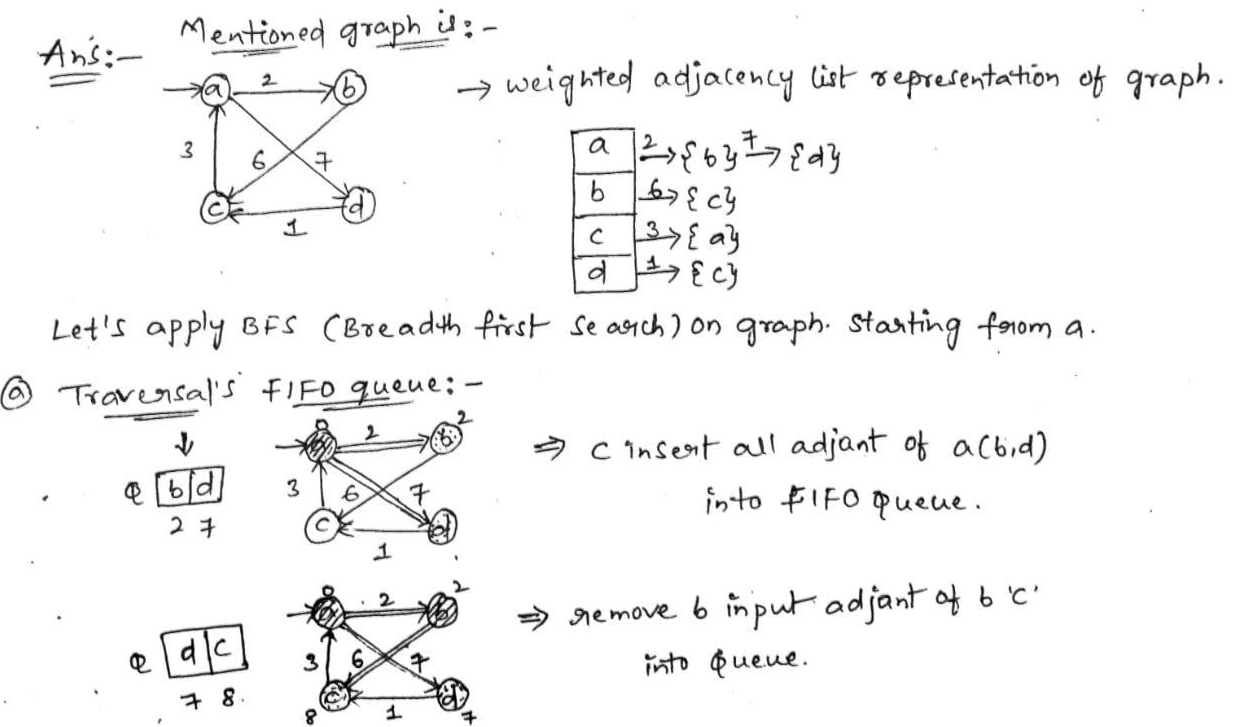 Ans:- Mentioned graph is:-
→ weighted adjacency list representation of graph.
a 2 b
3 6 7
c 1 d
a 2→{b} 7→{d}
b 6→{c}
c 3→{a}
d 1→{c}
Let's apply BFS (Breadth first search) on graph. Starting from a.
ⓐ Traversal's FIFO queue:-
Q b d
2 7
0 2 b 2
3 6 7
c 1 d
⇒ C insert all adjant of a(b,d)
into FIFO Queue.
Q d c
7 8
0 a 2 b 2
3 6 7
c 8 1 d 7
⇒ remove b input adjant of b 'c'
into Queue.